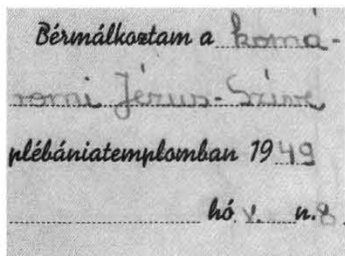 Bérmálkoztam a komá-
romi Jézus-Szive
plébániatemplomban 1949
hó V. n. 8.